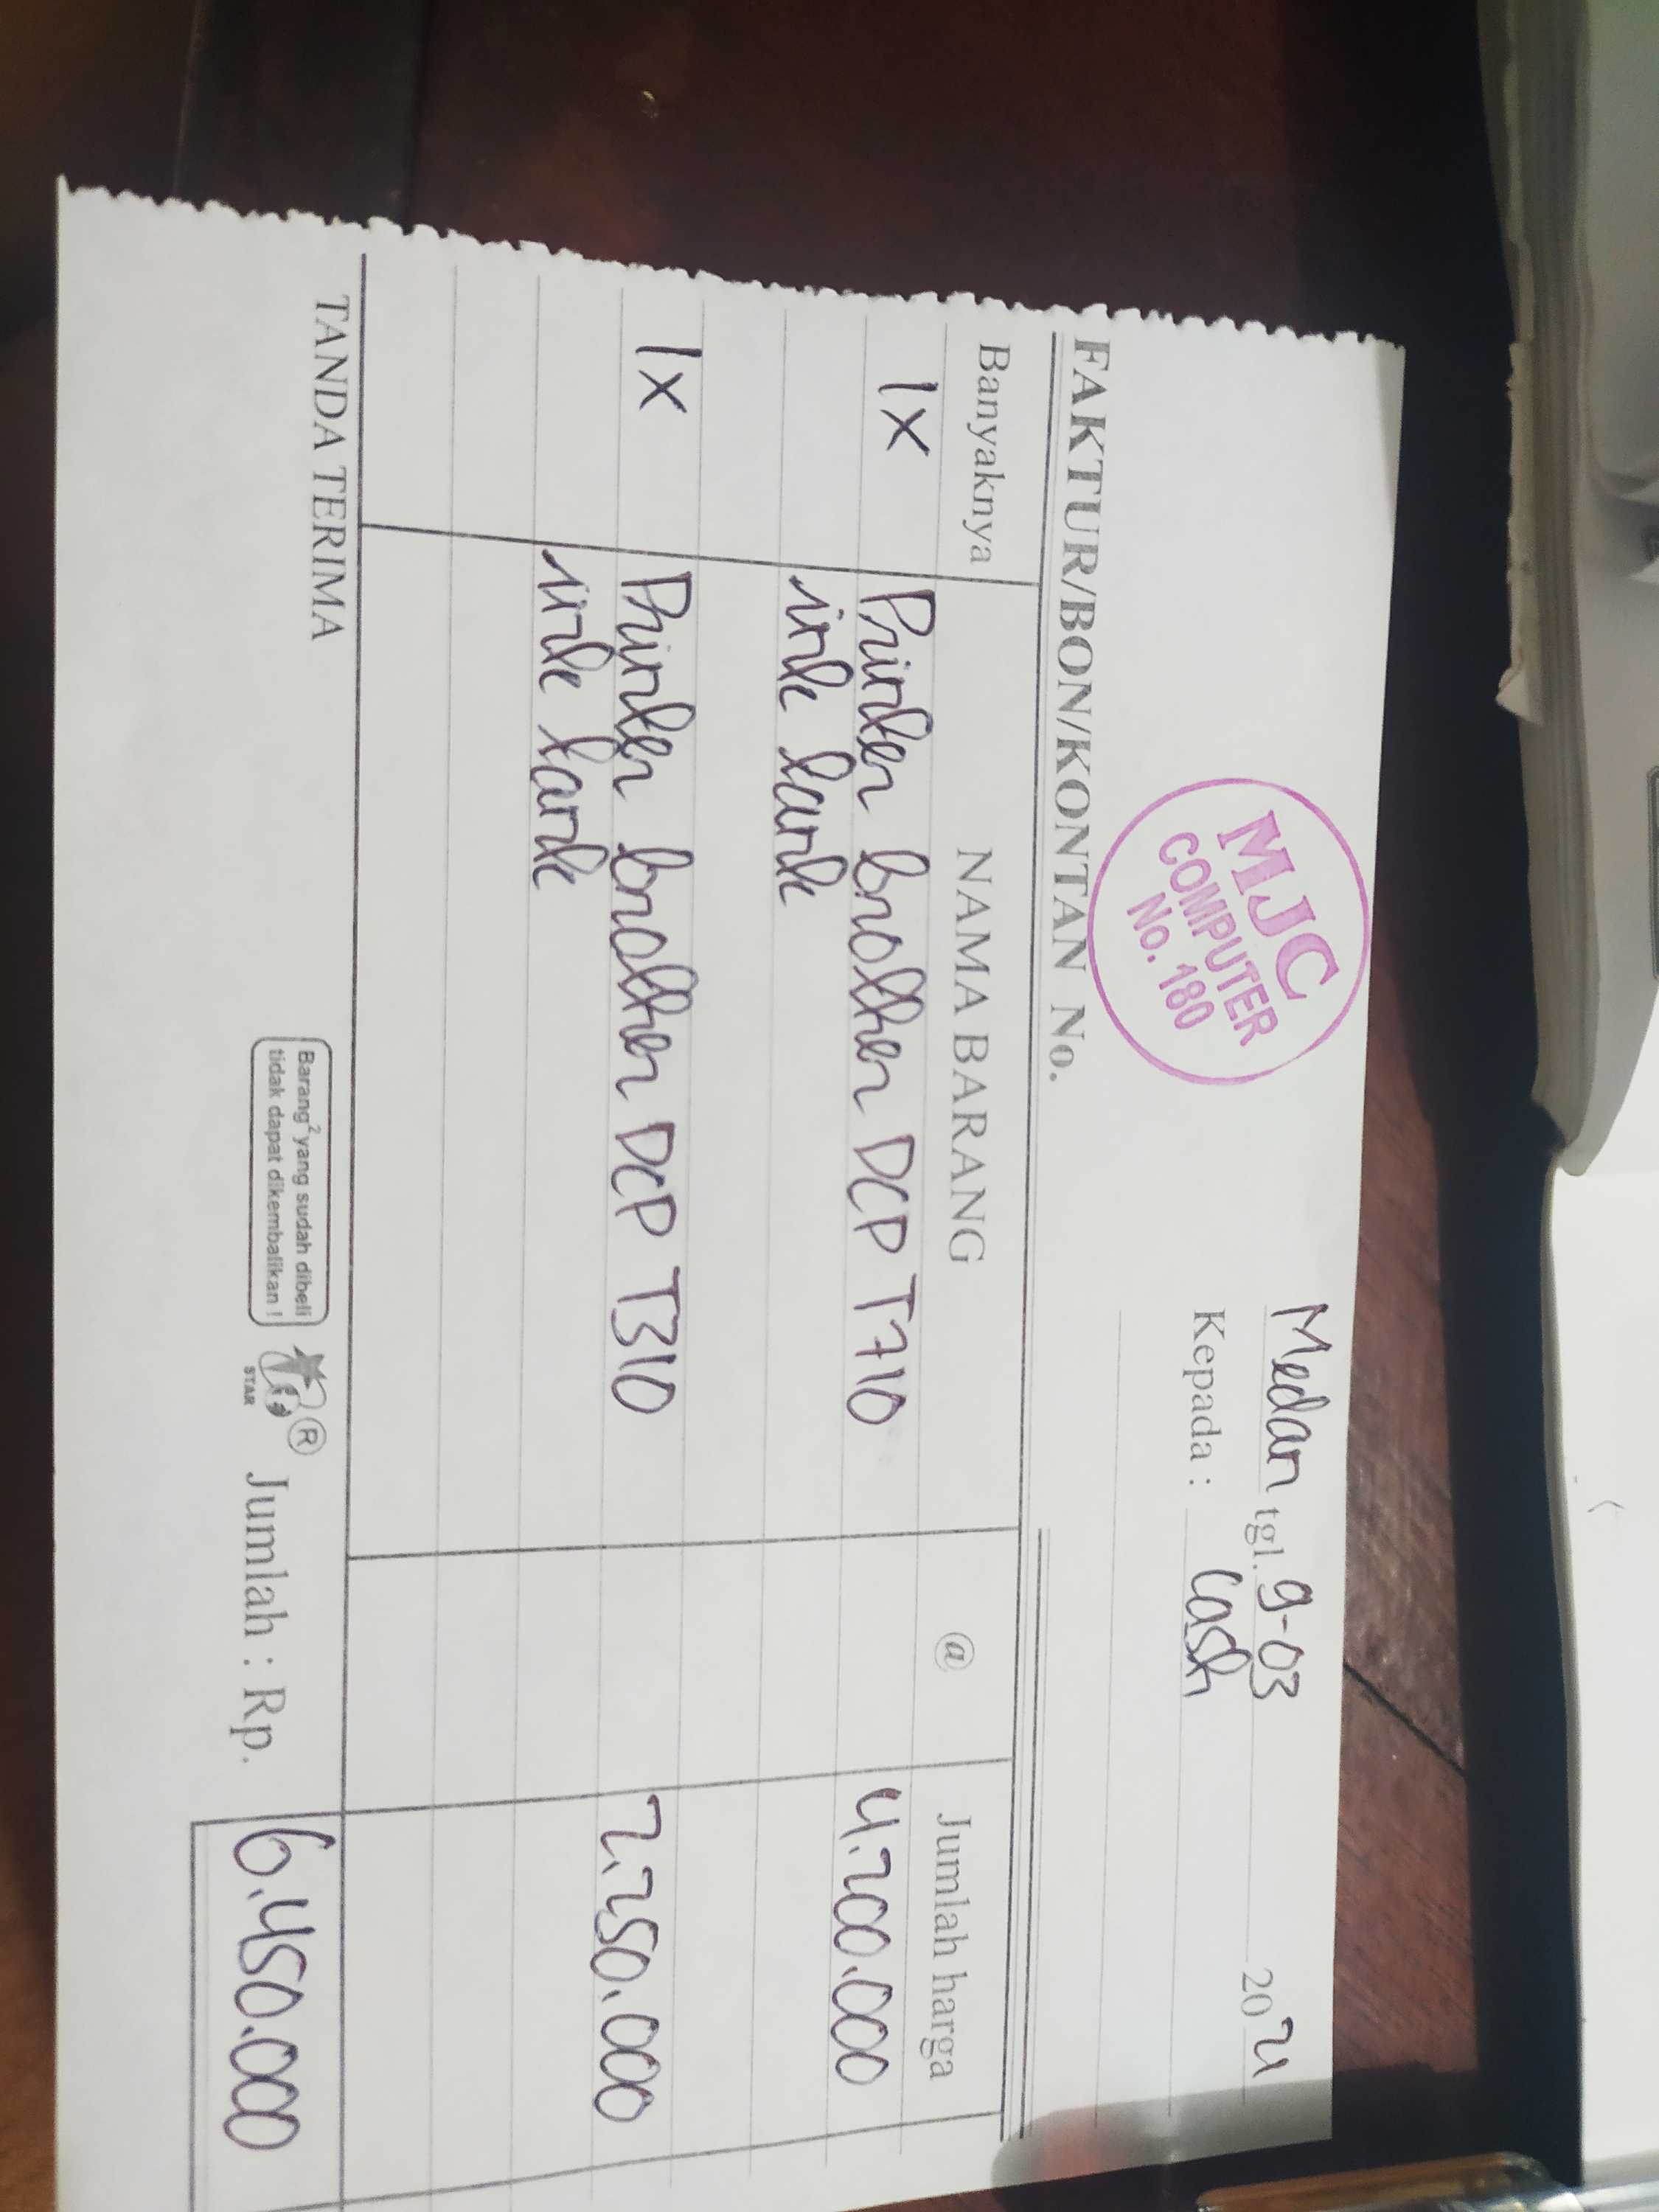 MJC
COMPUTER
No. 180
Medan tgl. 9-03 2021
Kepada : Cash
FAKTUR/BON/KONTAN No.
Banyaknya NAMA BARANG @ Jumlah harga
1x Printer brother DCP T710 4.200.000
ink tank
1x Printer brother DCP T310 2.250.000
ink tank
TANDA TERIMA
Barang² yang sudah dibeli
tidak dapat dikembalikan !
STAR
®
Jumlah : Rp. 6.450.000